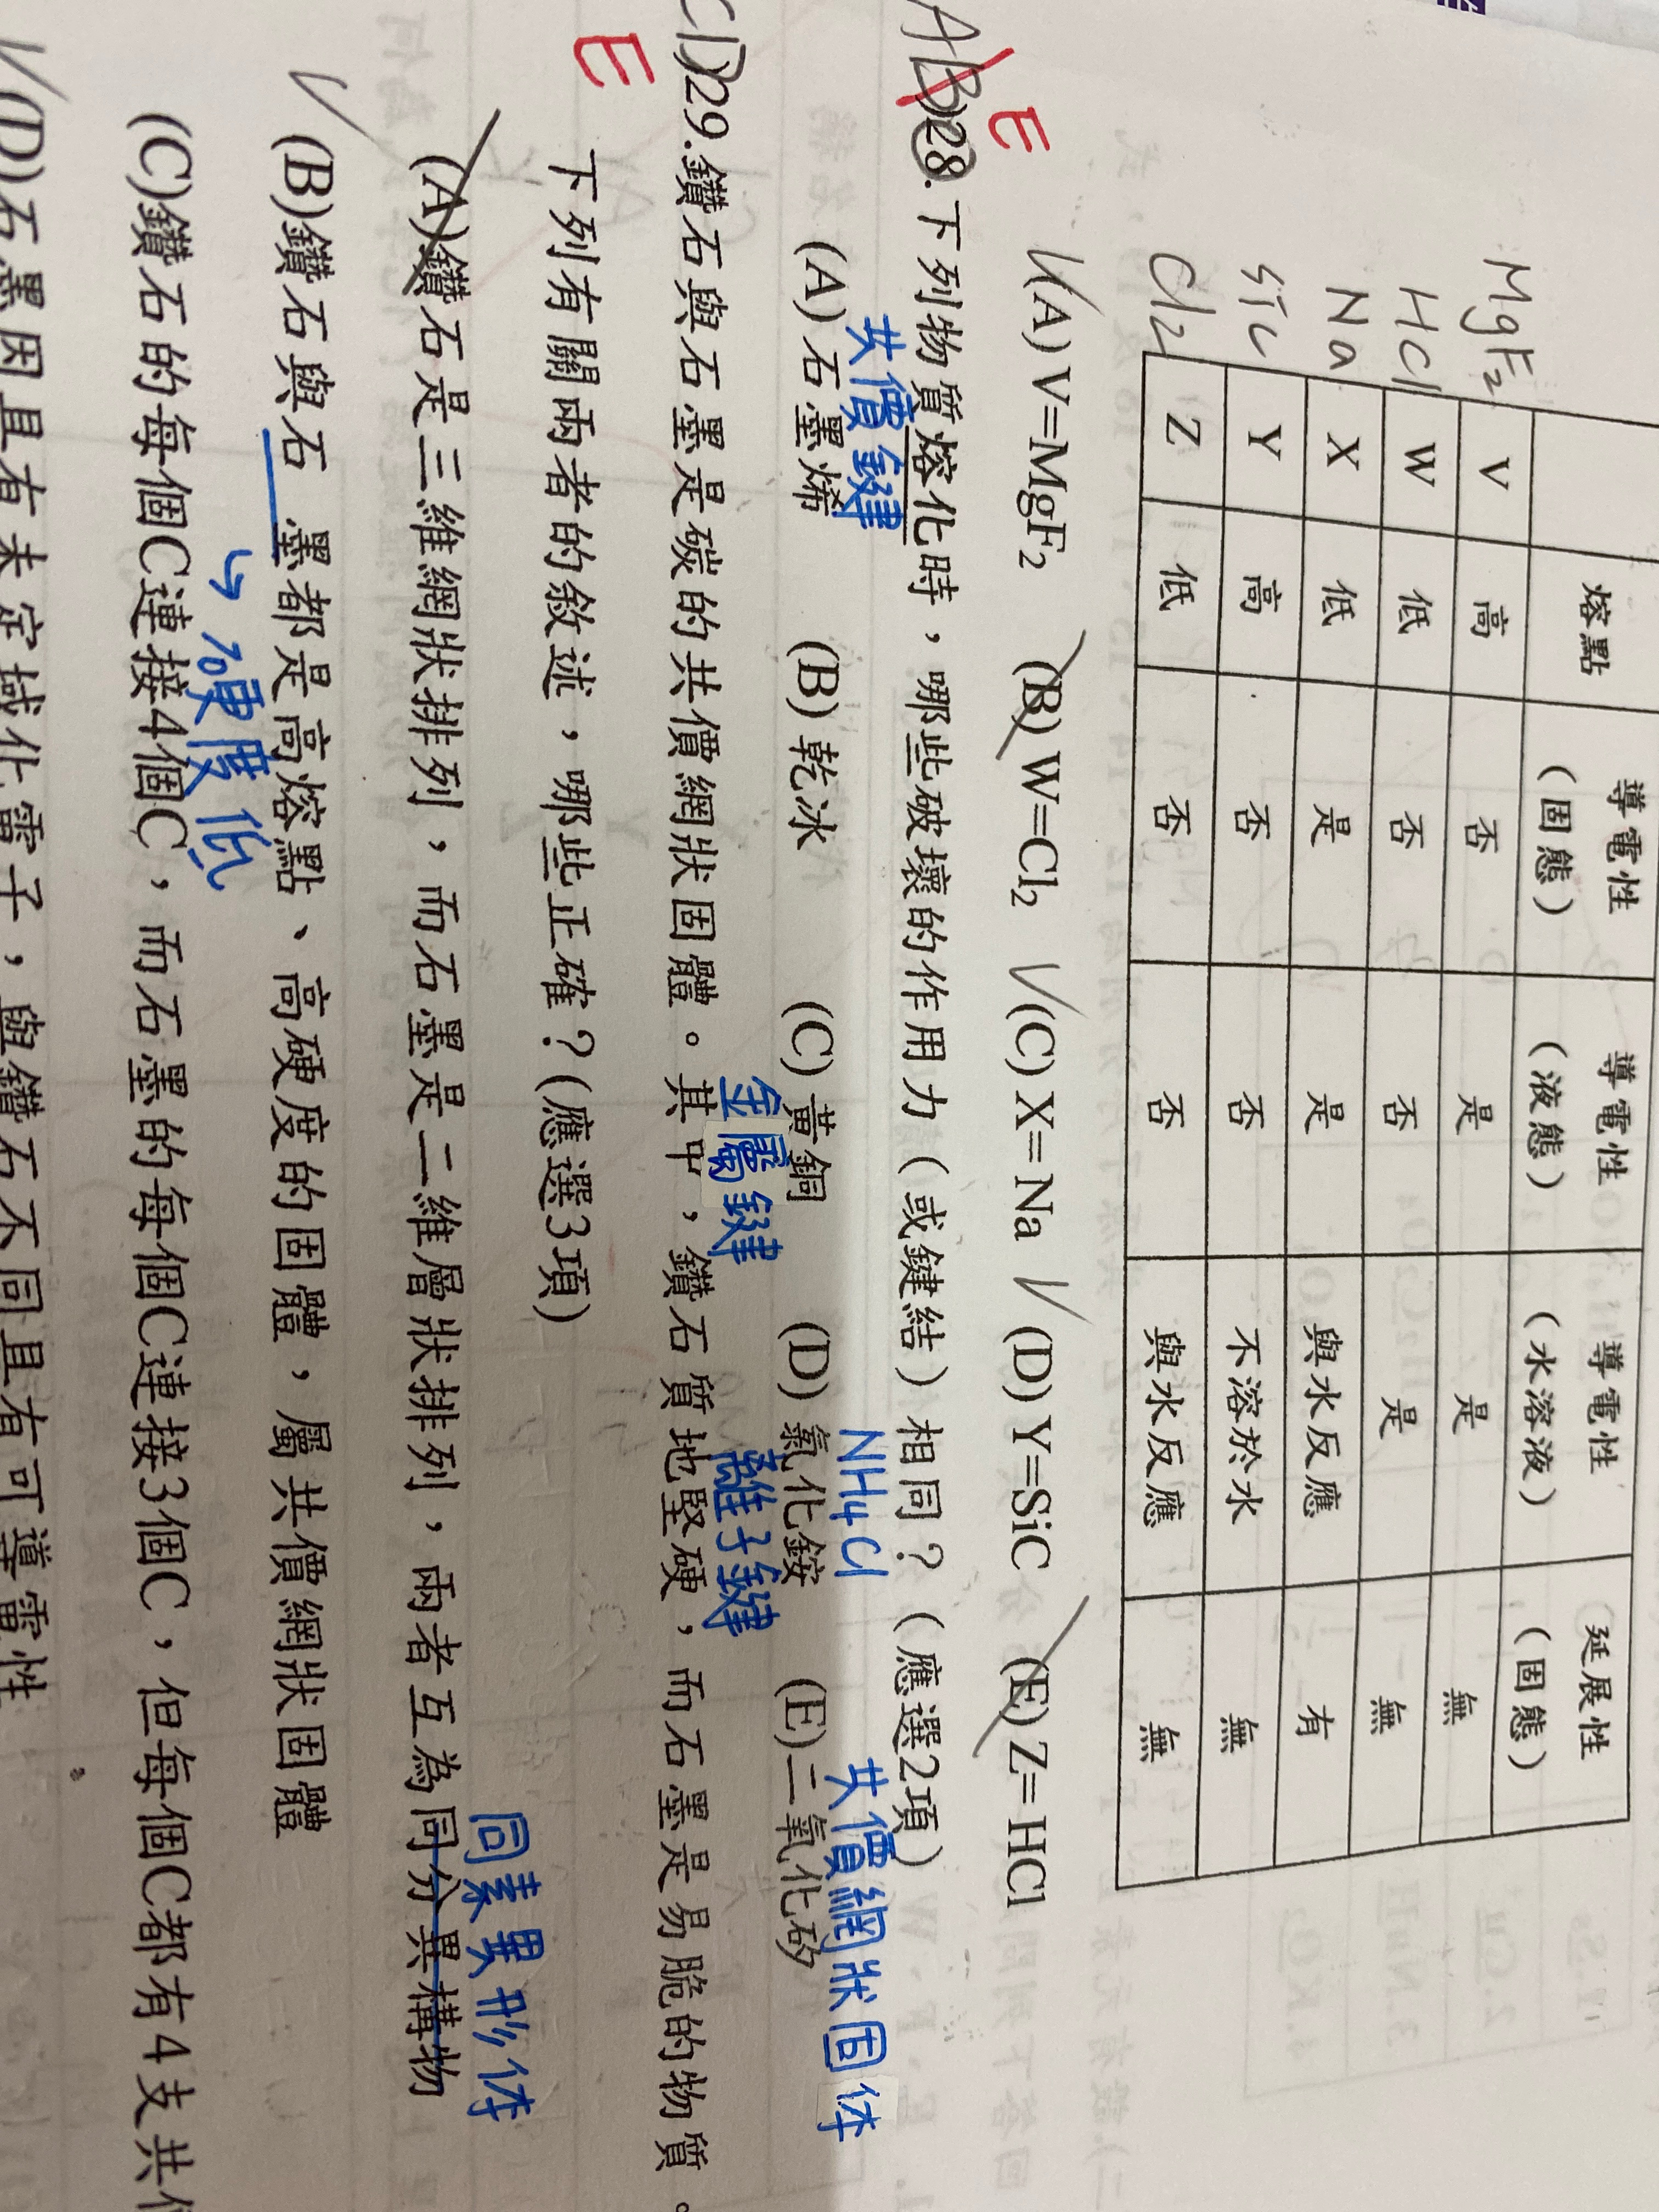 熔點 導電性（固態） 導電性（液態） 導電性（水溶液） 延展性（固態）
MgF₂ V 高 否 是 是 無
HCl W 低 否 否 是 無
Na X 低 是 是 與水反應 有
SiC Y 高 否 否 不溶於水 無
Cl₂ Z 低 否 否 與水反應 無
(A) V=MgF₂ (B) W=Cl₂ (C) X=Na (D) Y=SiC (E) Z=HCl
E
AB 28. 下列物質熔化時，哪些破壞的作用力（或鍵結）相同？（應選2項）
共價鍵 NH4Cl 共價網狀固体
(A) 石墨烯 (B) 乾冰 (C) 黃銅 (D) 氯化銨 (E) 二氧化矽
金屬鍵 離子鍵
CD)29. 鑽石與石墨是碳的共價網狀固體。其中，鑽石質地堅硬，而石墨是易脆的物質。
E
下列有關兩者的敘述，哪些正確？(應選3項)
同素異形体
(A)鑽石是三維網狀排列，而石墨是二維層狀排列，兩者互為同分異構物
(B)鑽石與石墨都是高熔點、高硬度的固體，屬共價網狀固體
硬度低
(C)鑽石的每個C連接4個C，而石墨的每個C連接3個C，但每個C都有4支共
(D)石墨因具有未定域化電子，與鑽石不同具有可導電性